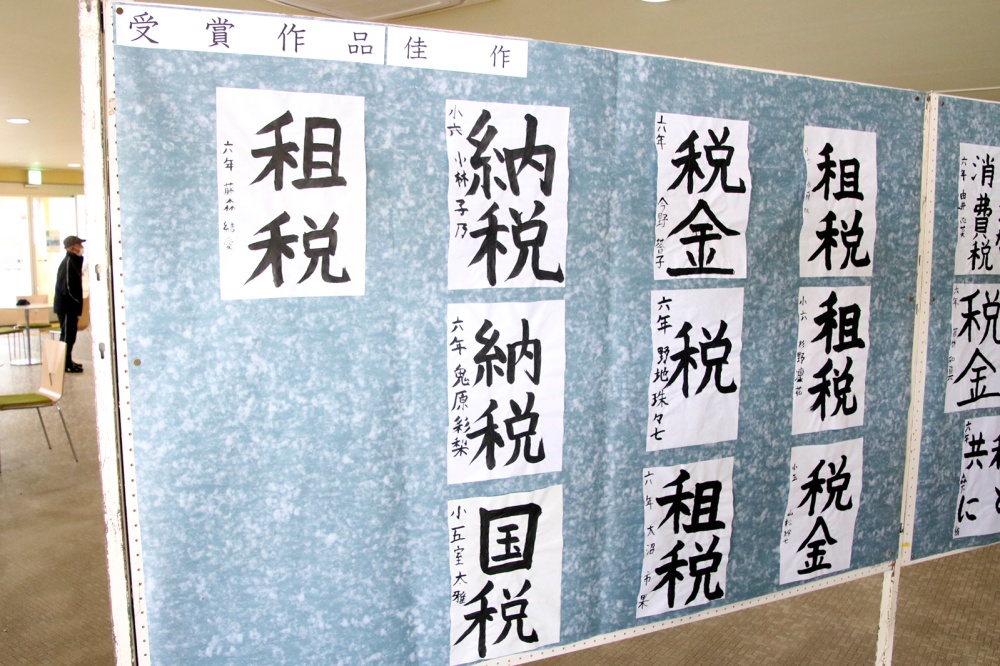 受賞作品
佳作
租税
六年 藤森 結愛
納税
小六 小林 子乃
納税
六年 鬼原 彩梨
国税
小五 室 大雅
税金
六年 今野
税
六年 野地 珠々七
租税
六年 大沼
租税
租税
小六
税金
消費税
六年
税金
共に